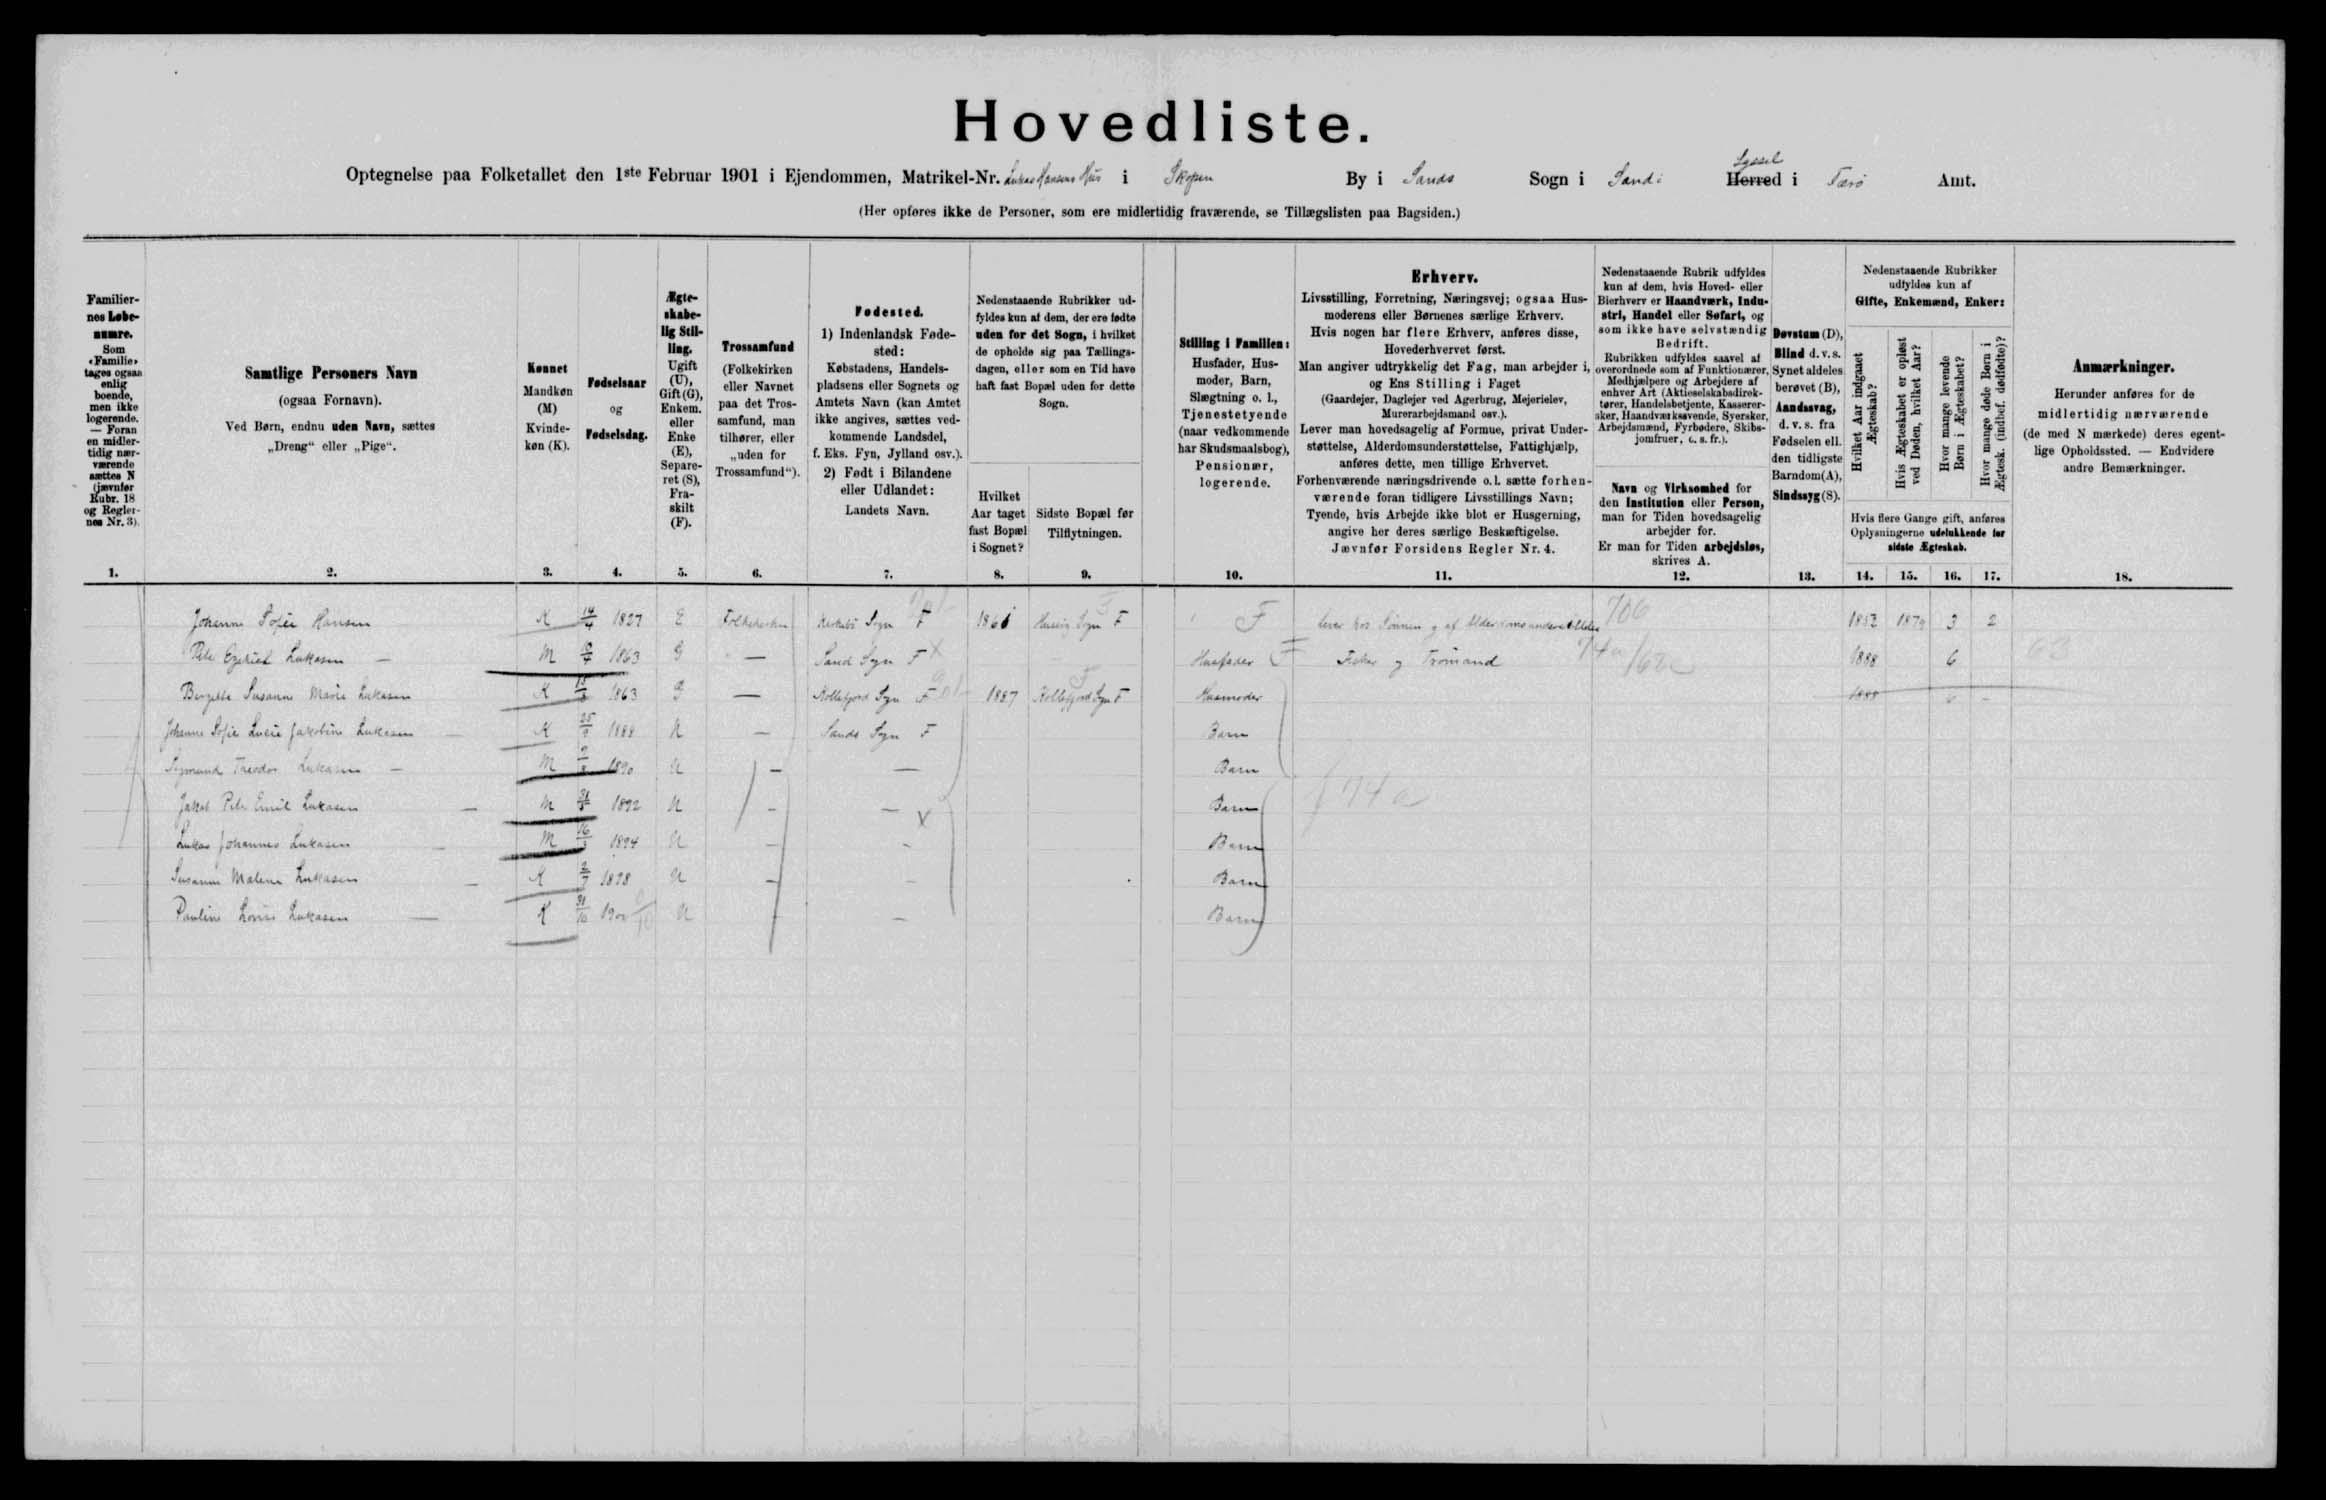 Hovedliste.
Optegnelse paa Folketallet den 1ste Februar 1901 i Ejendommen, Matrikel-Nr. Lukas Hansens Hus i Skopen By i Sands Sogn i Sandø Syssel Herred i Færø Amt.
(Her opføres ikke de Personer, som ere midlertidig fraværende, se Tillægslisten paa Bagsiden.)
Familier-
nes Løbe-
numre.
Som
«Familie»
tages ogsaa
enlig
boende,
men ikke
logerende.
— Foran
en midler-
tidig nær-
værende
sættes N
(jævnfør
Rubr. 18
og Regler-
nes Nr. 3).
1.
Samtlige Personers Navn
(ogsaa Fornavn).
Ved Børn, endnu uden Navn, sættes
„Dreng“ eller „Pige“.
2.
Kønnet
Mandkøn
(M)
Kvinde-
køn (K).
3.
Fødselsaar
og
Fødselsdag.
4.
Ægte-
skabe-
lig Stil-
ling.
Ugift
(U),
Gift (G),
Enkem.
eller
Enke
(E),
Separe-
ret (S),
Fra-
skilt
(F).
5.
Trossamfund
(Folkekirken
eller Navnet
paa det Tros-
samfund, man
tilhører, eller
„uden for
Trossamfund“).
6.
Fødested.
1) Indenlandsk Føde-
sted:
Købstadens, Handels-
pladsens eller Sognets og
Amtets Navn (kan Amtet
ikke angives, sættes ved-
kommende Landsdel,
f. Eks. Fyn, Jylland osv.).
2) Født i Bilandene
eller Udlandet:
Landets Navn.
7.
Nedenstaaende Rubrikker ud-
fyldes kun af dem, der ere fødte
uden for det Sogn, i hvilket
de opholde sig paa Tællings-
dagen, eller som en Tid have
haft fast Bopæl uden for dette
Sogn.
Hvilket
Aar taget
fast Bopæl
i Sognet?
8.
Sidste Bopæl før
Tilflytningen.
9.
Stilling i Familien:
Husfader, Hus-
moder, Barn,
Slægtning o. l.,
Tjenestetyende
(naar vedkommende
har Skudsmaalsbog),
Pensionær,
logerende.
10.
Erhverv.
Livsstilling, Forretning, Næringsvej; ogsaa Hus-
moderens eller Børnenes særlige Erhverv.
Hvis nogen har flere Erhverv, anføres disse,
Hovederhvervet først.
Man angiver udtrykkelig det Fag, man arbejder i,
og Ens Stilling i Faget
(Gaardejer, Daglejer ved Agerbrug, Mejerielev,
Murerarbejdsmand osv.).
Lever man hovedsagelig af Formue, privat Under-
støttelse, Alderdomsunderstøttelse, Fattighjælp,
anføres dette, men tillige Erhvervet.
Forhenværende næringsdrivende o. l. sætte forhen-
værende foran tidligere Livsstillings Navn;
Tyende, hvis Arbejde ikke blot er Husgerning,
angive her deres særlige Beskæftigelse.
Jævnfør Forsidens Regler Nr. 4.
11.
Nedenstaaende Rubrik udfyldes
kun af dem, hvis Hoved- eller
Bierhverv er Haandværk, Indu-
stri, Handel eller Søfart, og
som ikke have selvstændig
Bedrift.
Rubrikken udfyldes saavel af
overordnede som af Funktionærer,
Medhjælpere og Arbejdere af
enhver Art (Aktieselskabsdirek-
tører, Handelsbetjente, Kasserer-
sker, Haandværkssvende, Syersker,
Arbejdsmænd, Fyrbødere, Skibs-
jomfruer, o. s. fr.).
Navn og Virksomhed for
den Institution eller Person,
man for Tiden hovedsagelig
arbejder for.
Er man for Tiden arbejdsløs,
skrives A.
12.
Døvstum (D),
Blind d. v. s.
Synet aldeles
berøvet (B),
Aandssvag,
d. v. s. fra
Fødselen ell.
den tidligste
Barndom(A),
Sindssyg (S).
13.
Nedenstaaende Rubrikker
udfyldes kun af
Gifte, Enkemænd, Enker:
Hvilket Aar indgaaet
Ægteskab?
Hvis Ægteskabet er opløst
ved Døden, hvilket Aar?
Hvor mange levende
Børn i Ægteskabet?
Hvor mange døde Børn i
Ægtesk. (indbef. dødfødte)?
Hvis flere Gange gift, anføres
Oplysningerne udelukkende for
sidste Ægteskab.
14. 15. 16. 17.
Anmærkninger.
Herunder anføres for de
midlertidig nærværende
(de med N mærkede) deres egent-
lige Opholdssted. — Endvidere
andre Bemærkninger.
18.
Johanne Sofie Hansen K 14/4 1827 E Folkekirken Kirkebø Sogn F 1861 Sogn F F Lever hos Sønnen og af Alderdomsunderstøttelse 706 1852 1879 3 2
Peter Ezekiel Lukasen — M 1863 G — Sand Sogn F X Husfader F Fisker og Tromand 74a 1888 6 63
Bergitte Susanne Marie Lukasen K 1863 G — Kollefjord Sogn F 1887 Kollefjord Sogn F Husmoder 1888 6 -
Johanne Sofie Lucie Jakobine Lukasen — K 1888 U — Sands Sogn F Barn
Sigmund Theodor Lukasen — M 1890 U — — Barn
Jakob Peter Emil Lukasen — M 1892 U - — Barn 74a
Lukas Johannes Lukasen — M 1894 U - - X Barn
Susanne Malene Lukasen — K 2/7 1898 U - - Barn
Pauline Lovise Lukasen — K 31/10 1900 U - — Barn